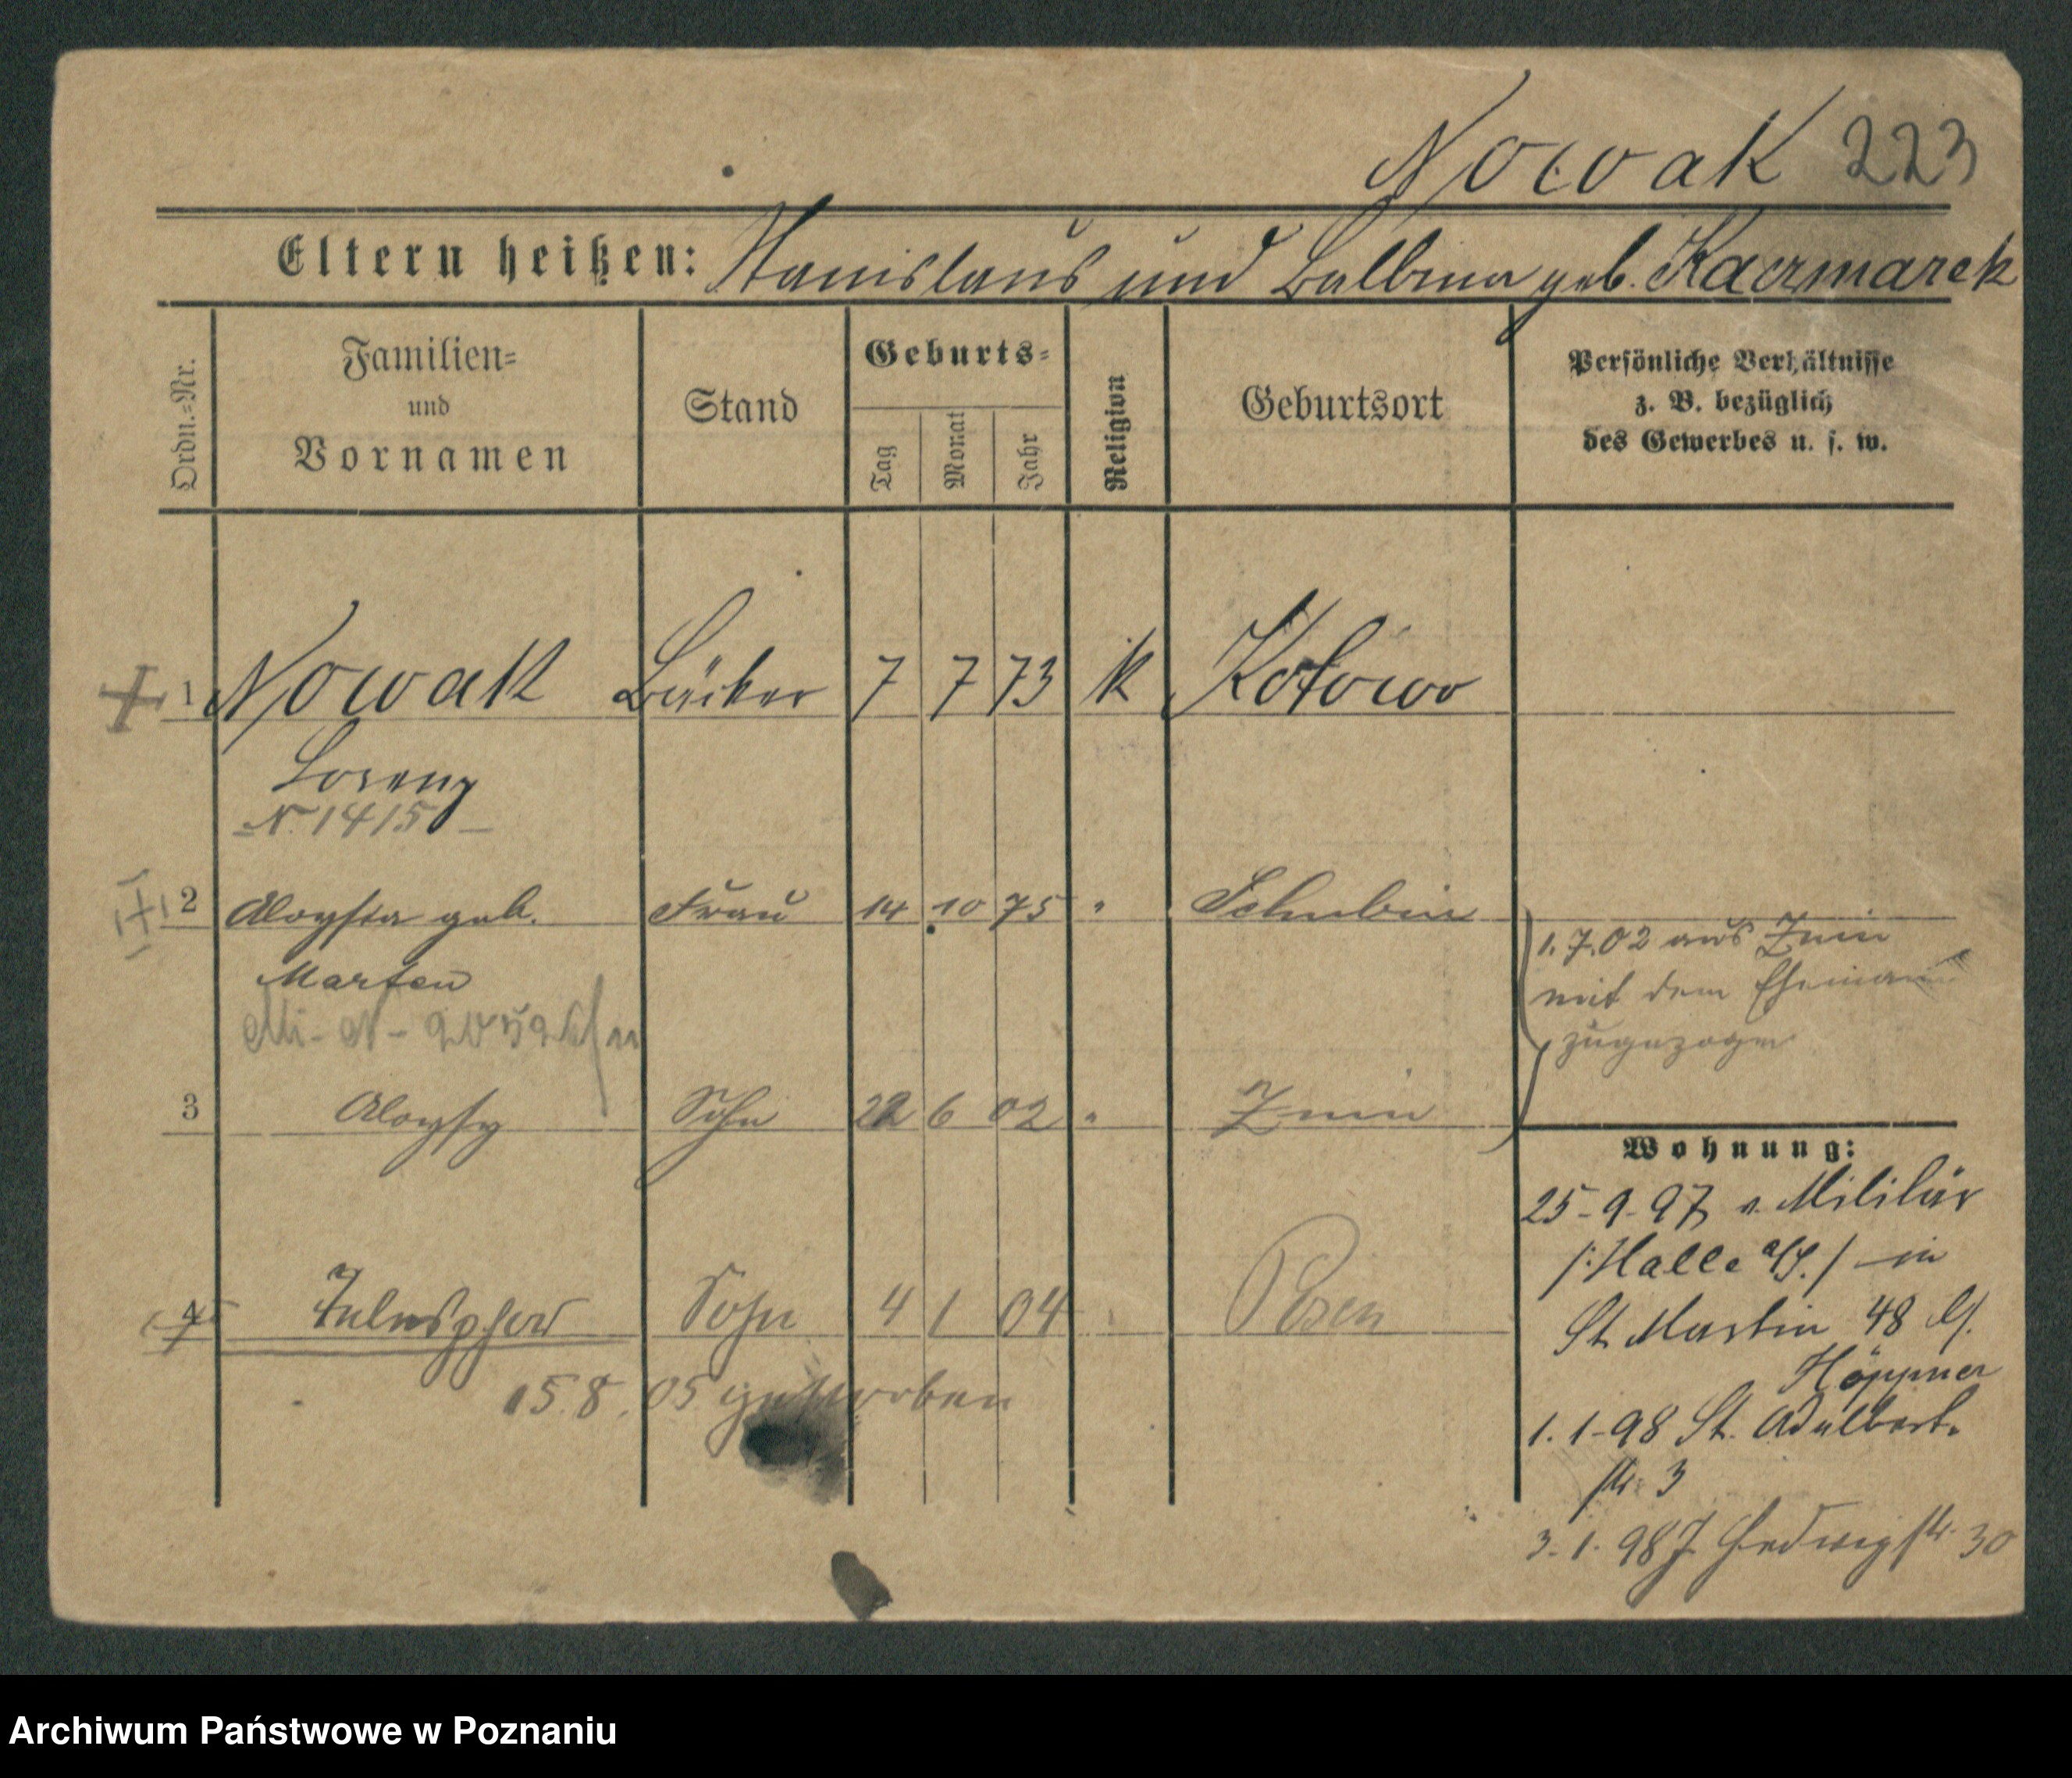 Nowak 223
Eltern heißen: Stanislaus und Balbina geb. Kaczmarek
Ordn.-Nr.
Familien-
und
Vornamen
Stand
Geburts-
Tag
Monat
Jahr
Religion
Geburtsort
Persönliche Verhältnisse
z. B. bezüglich
des Gewerbes u. s. w.
1 Nowak Bäcker 7 7 73 k Kotowo
Lorenz
N. 1415
2 Aloysia geb. Frau 14 10 75 " Schubin
Marten
1.7.02 aus Znin
mit dem Ehemann
zugezogen
3 Aloysy Sohn 22 6 02 " Znin
4 Sohn 4 1 04 Posen
15.8.05 gestorben
Wohnung:
25-9-97 v. Militär
/: Halle a/S. / in
St Martin 48 b/.
Höppner
1.1-98 St. Adalbert-
str. 3
3.1.98 Hedwigstr 30
Archiwum Państwowe w Poznaniu